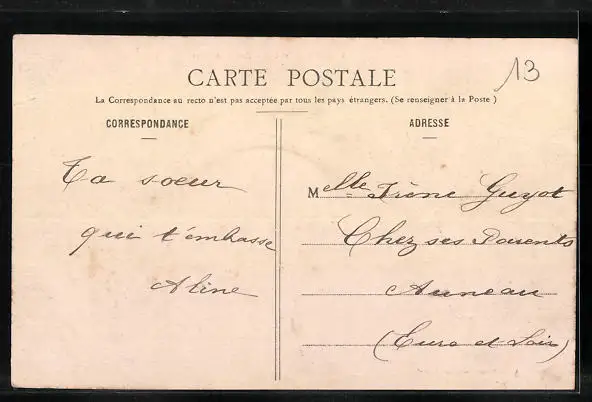 13
CARTE POSTALE
La Correspondance au recto n'est pas acceptée par tous les pays étrangers. (Se renseigner à la Poste)
CORRESPONDANCE
ADRESSE
Ta soeur
qui t'embrasse
Aline
Melle Irène Guyot
Chez ses Parents
Auneau
(Eure et Loir)